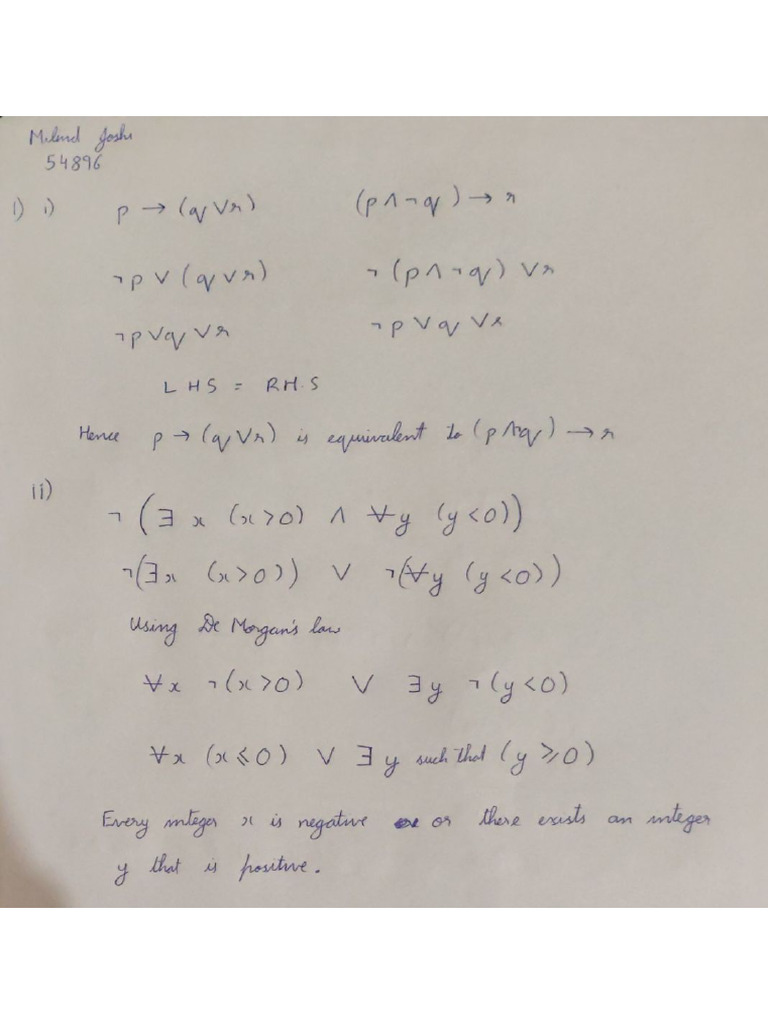 Milind Joshi
54896
1) i) p → (q ∨ r) (p ∧ ¬q) → r
¬p ∨ (q ∨ r) ¬(p ∧ ¬q) ∨ r
¬p ∨ q ∨ r ¬p ∨ q ∨ r
LHS = RH.S
Hence p → (q ∨ r) is equivalent to (p ∧ ¬q) → r
ii)
¬(∃ x (x > 0) ∧ ∀y (y < 0))
¬(∃x (x > 0)) ∨ ¬(∀y (y < 0))
Using De Morgan's law
∀x ¬(x > 0) ∨ ∃y ¬(y < 0)
∀x (x ⩽ 0) ∨ ∃y such that (y ⩾ 0)
Every integer x is negative or there exists an integer
y that is positive.